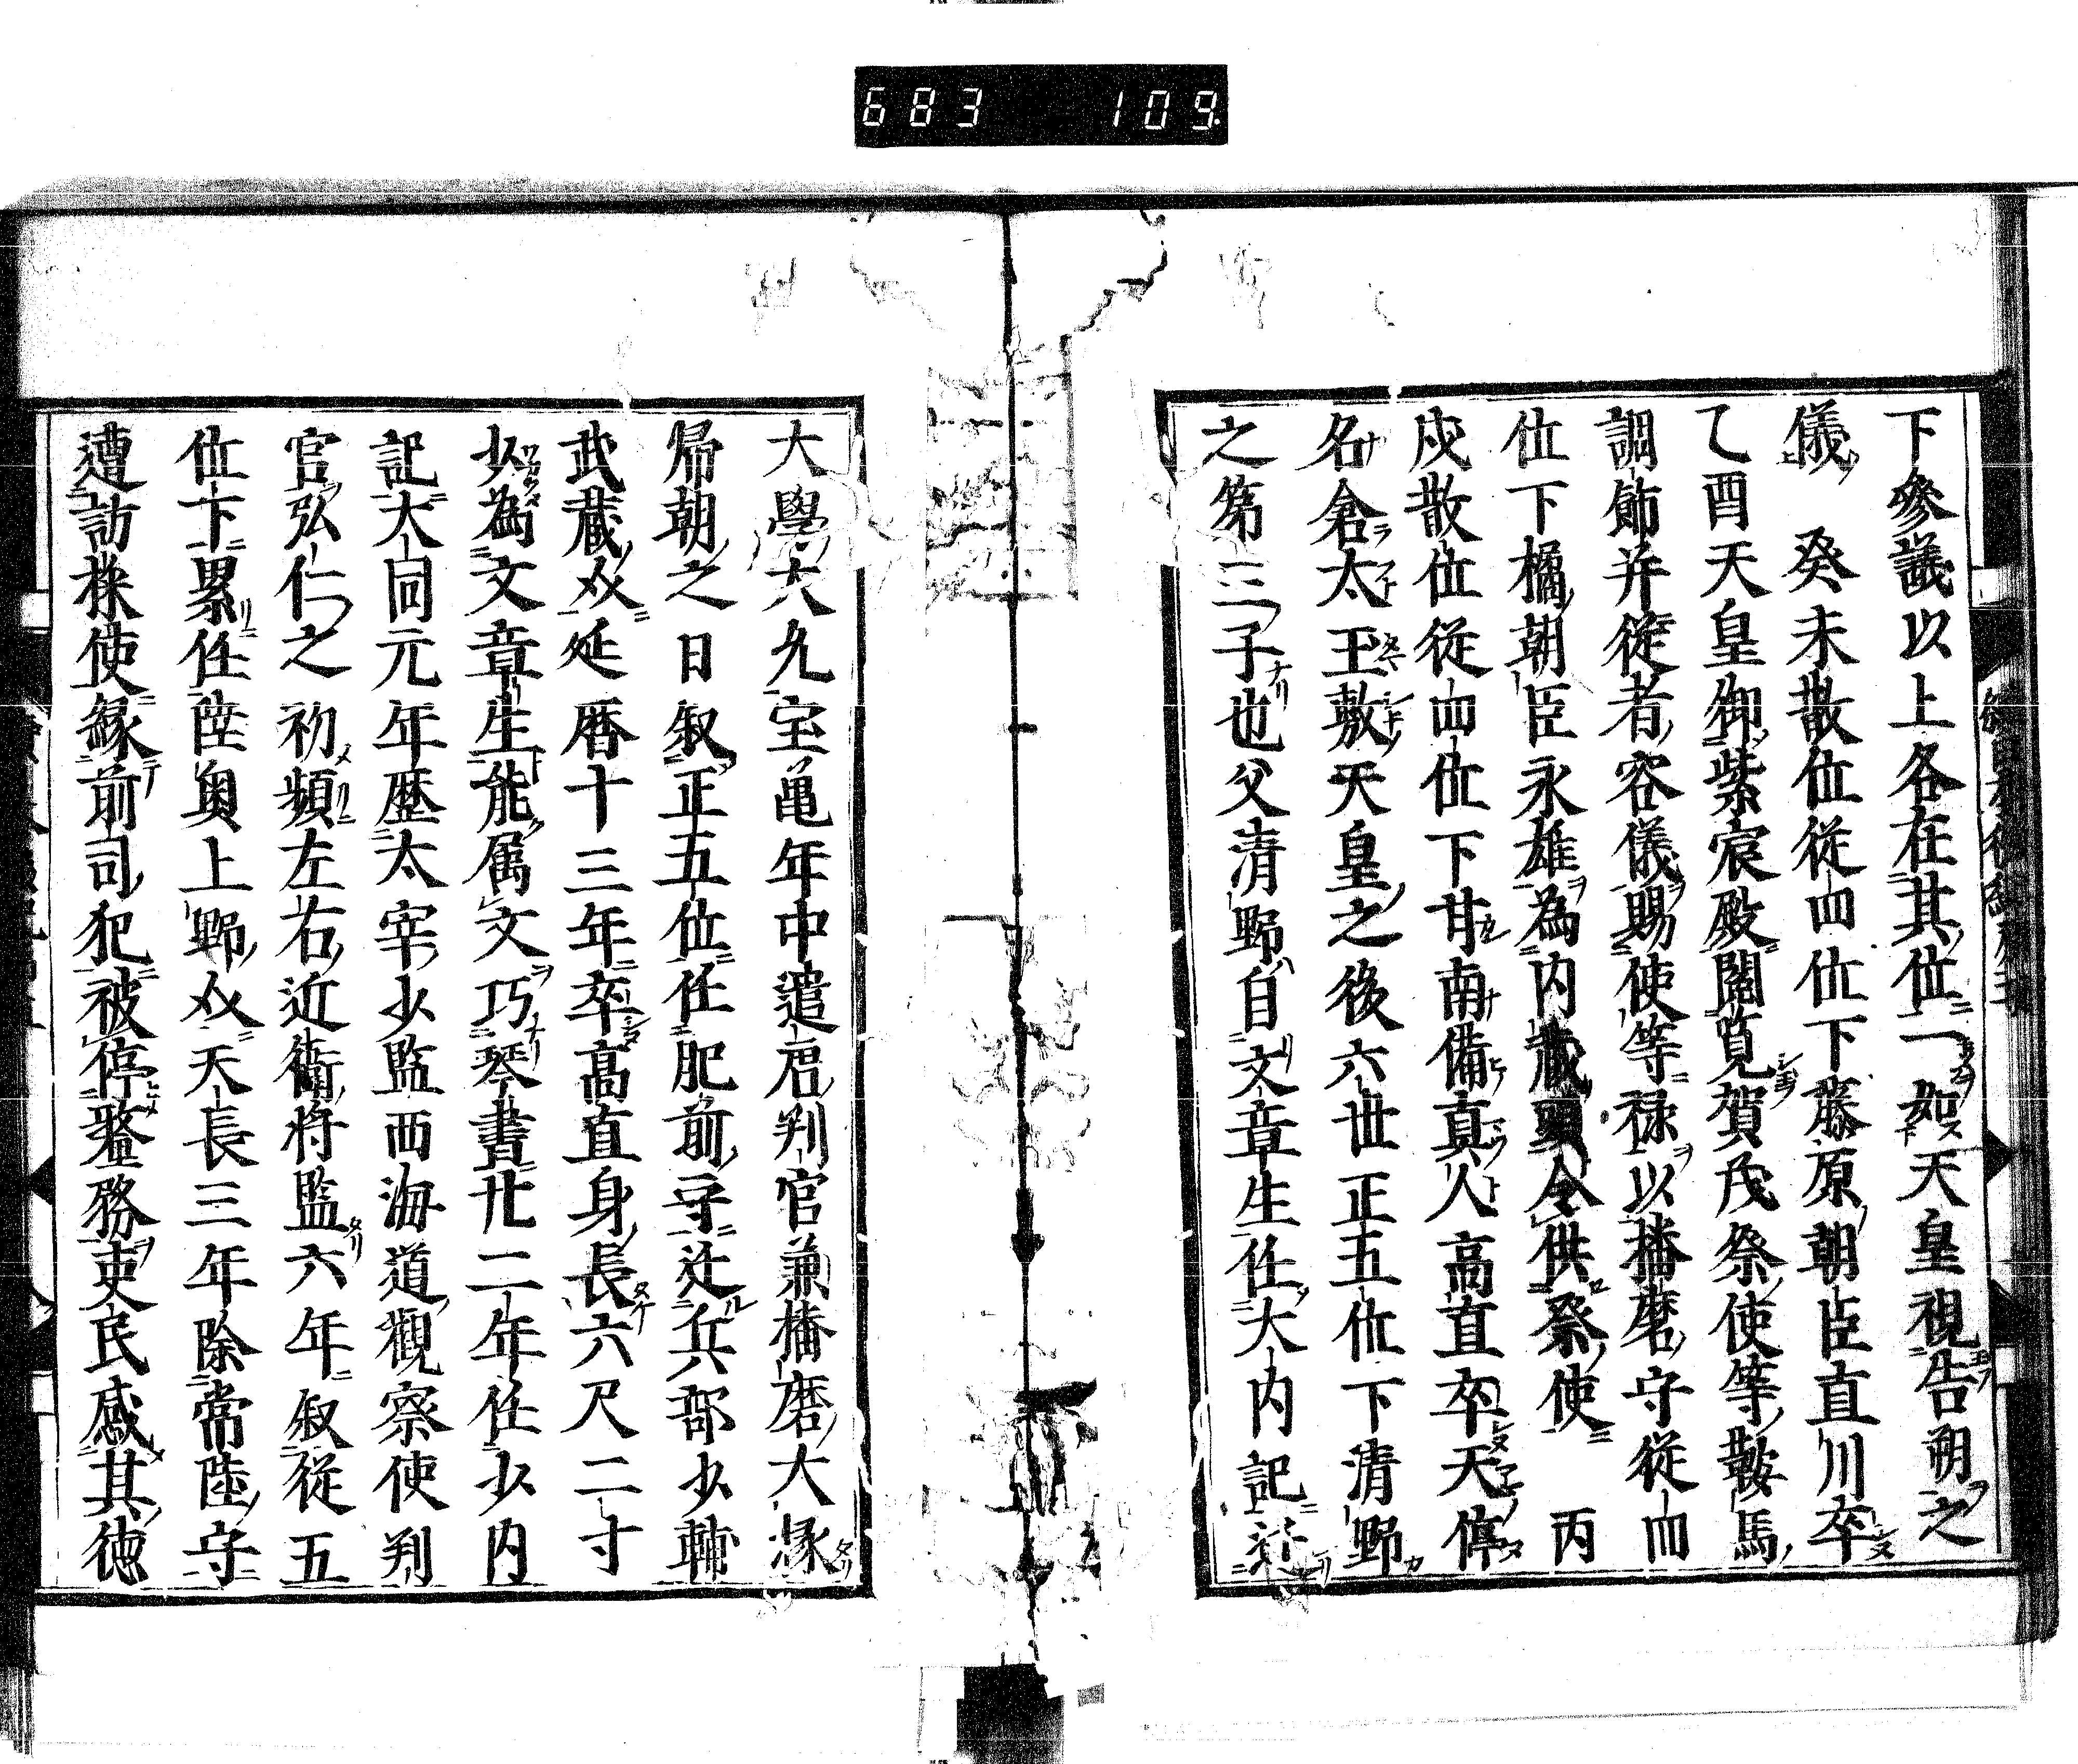 683 109
下參議以上各在其位一如天皇視告朔之
儀 癸未散位從四位下藤原朝臣直川卒
乙酉天皇御紫宸殿閲覧賀茂祭使等鞍馬
調飾并從者容儀賜使等禄以播磨守從四
位下橘朝臣永雄為内蔵頭令供祭使 丙
戌散位從四位下甘南備真人高直卒天停
名倉太王敷天皇之後六世正五位下清野
之第三子也父清野自文章生任大内記遷
大學大允宝亀年中遣唐判官兼播磨大掾
帰朝之日叙正五位任肥前守迁兵部少輔
武蔵守延暦十三年卒高直身長六尺二寸
少為文章生能属文巧琴書廿二年任少内
記大同元年歴太宰少監西海道觀察使判
官弘仁之初頻左右近衛将監六年叙從五
位下累任陸奥上野守天長三年除常陸守
遭訪採使縁前司犯被停釐務吏民感其徳